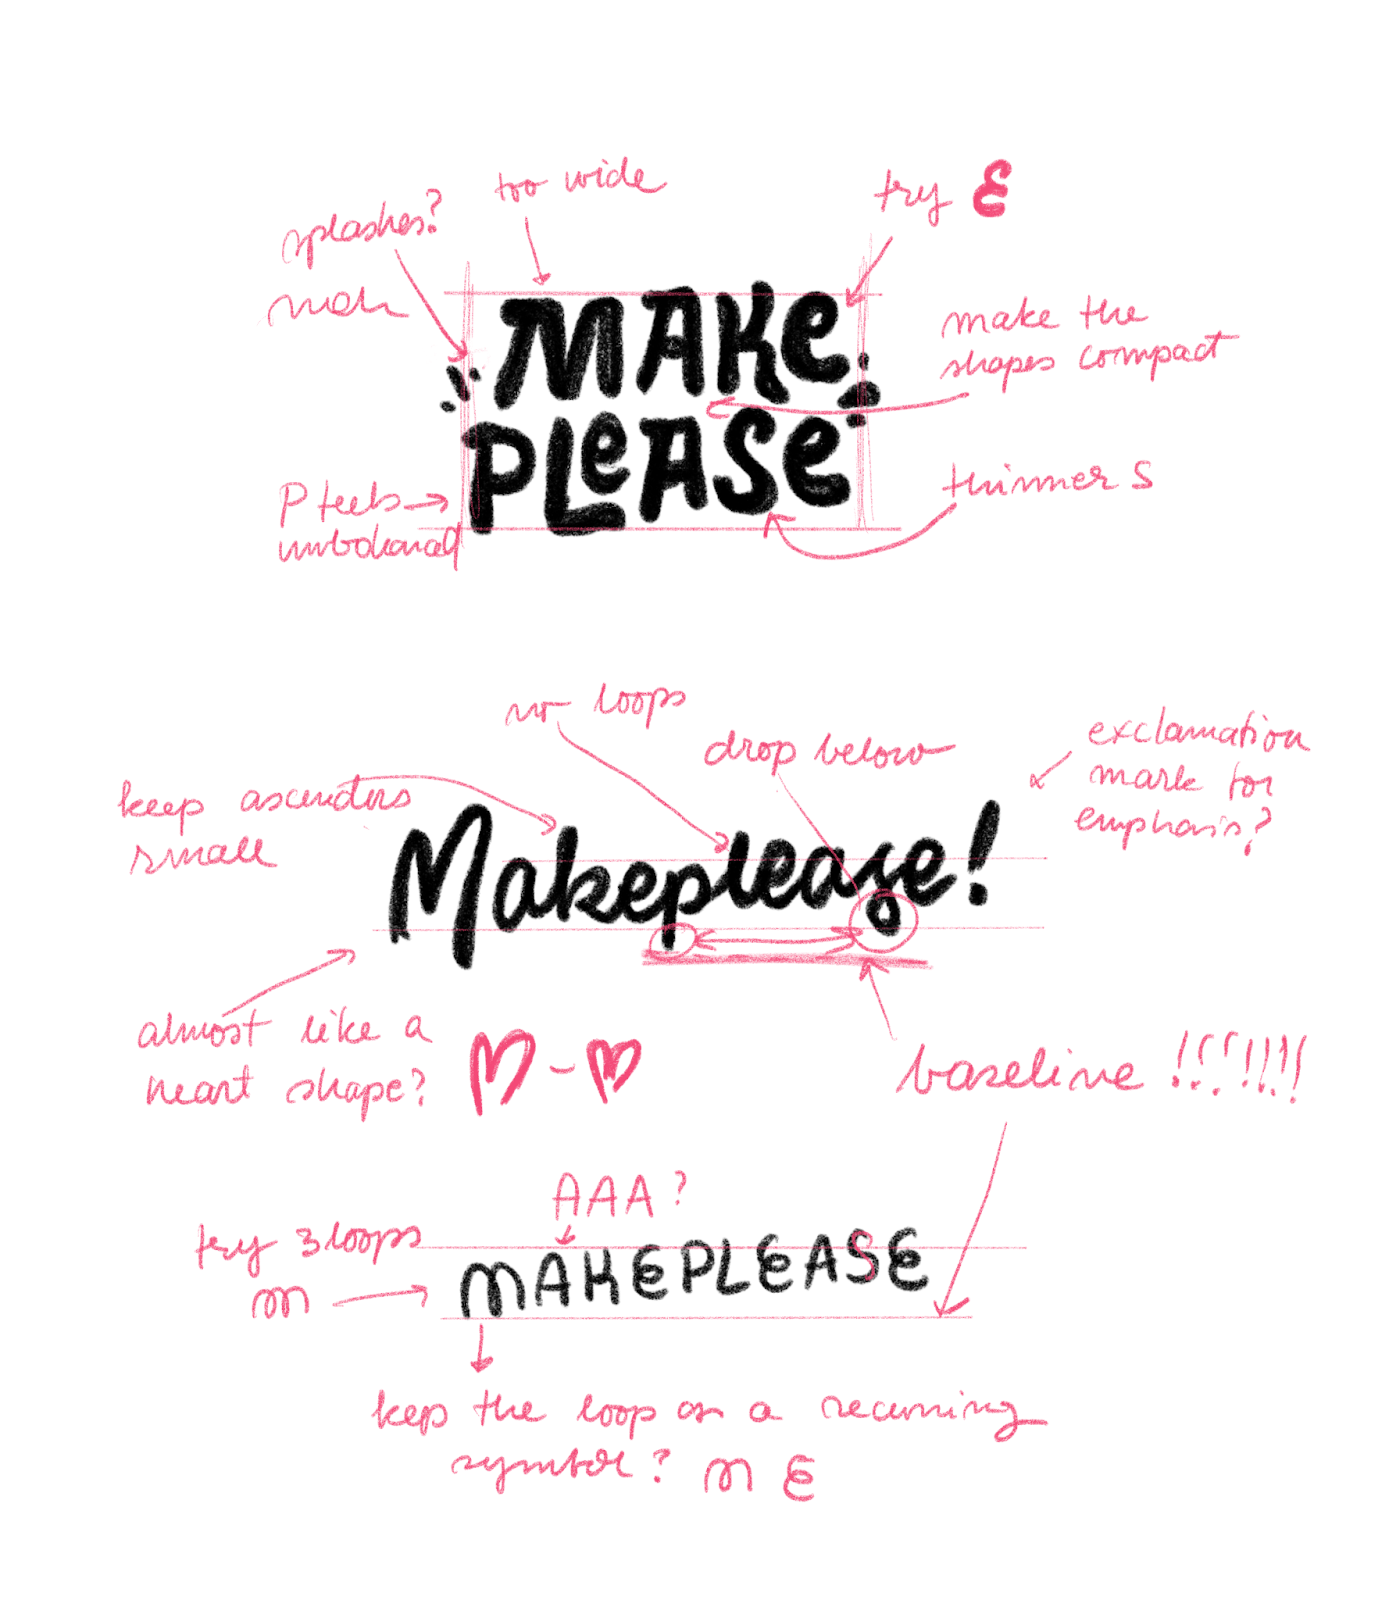 too wide
try E
splashes?
nah
MAKE
PLEASE
make the
shapes compact
thinner S
P feels
unbalanced
no loops
drop below
exclamation
mark for
emphasis?
keep ascenders
small
Makeplease!
almost like a
heart shape?
baseline !!!!!!!!
AAA?
try 3 loops
m
MAKEPLEASE
kep the loop as a recurring
symbol? m E